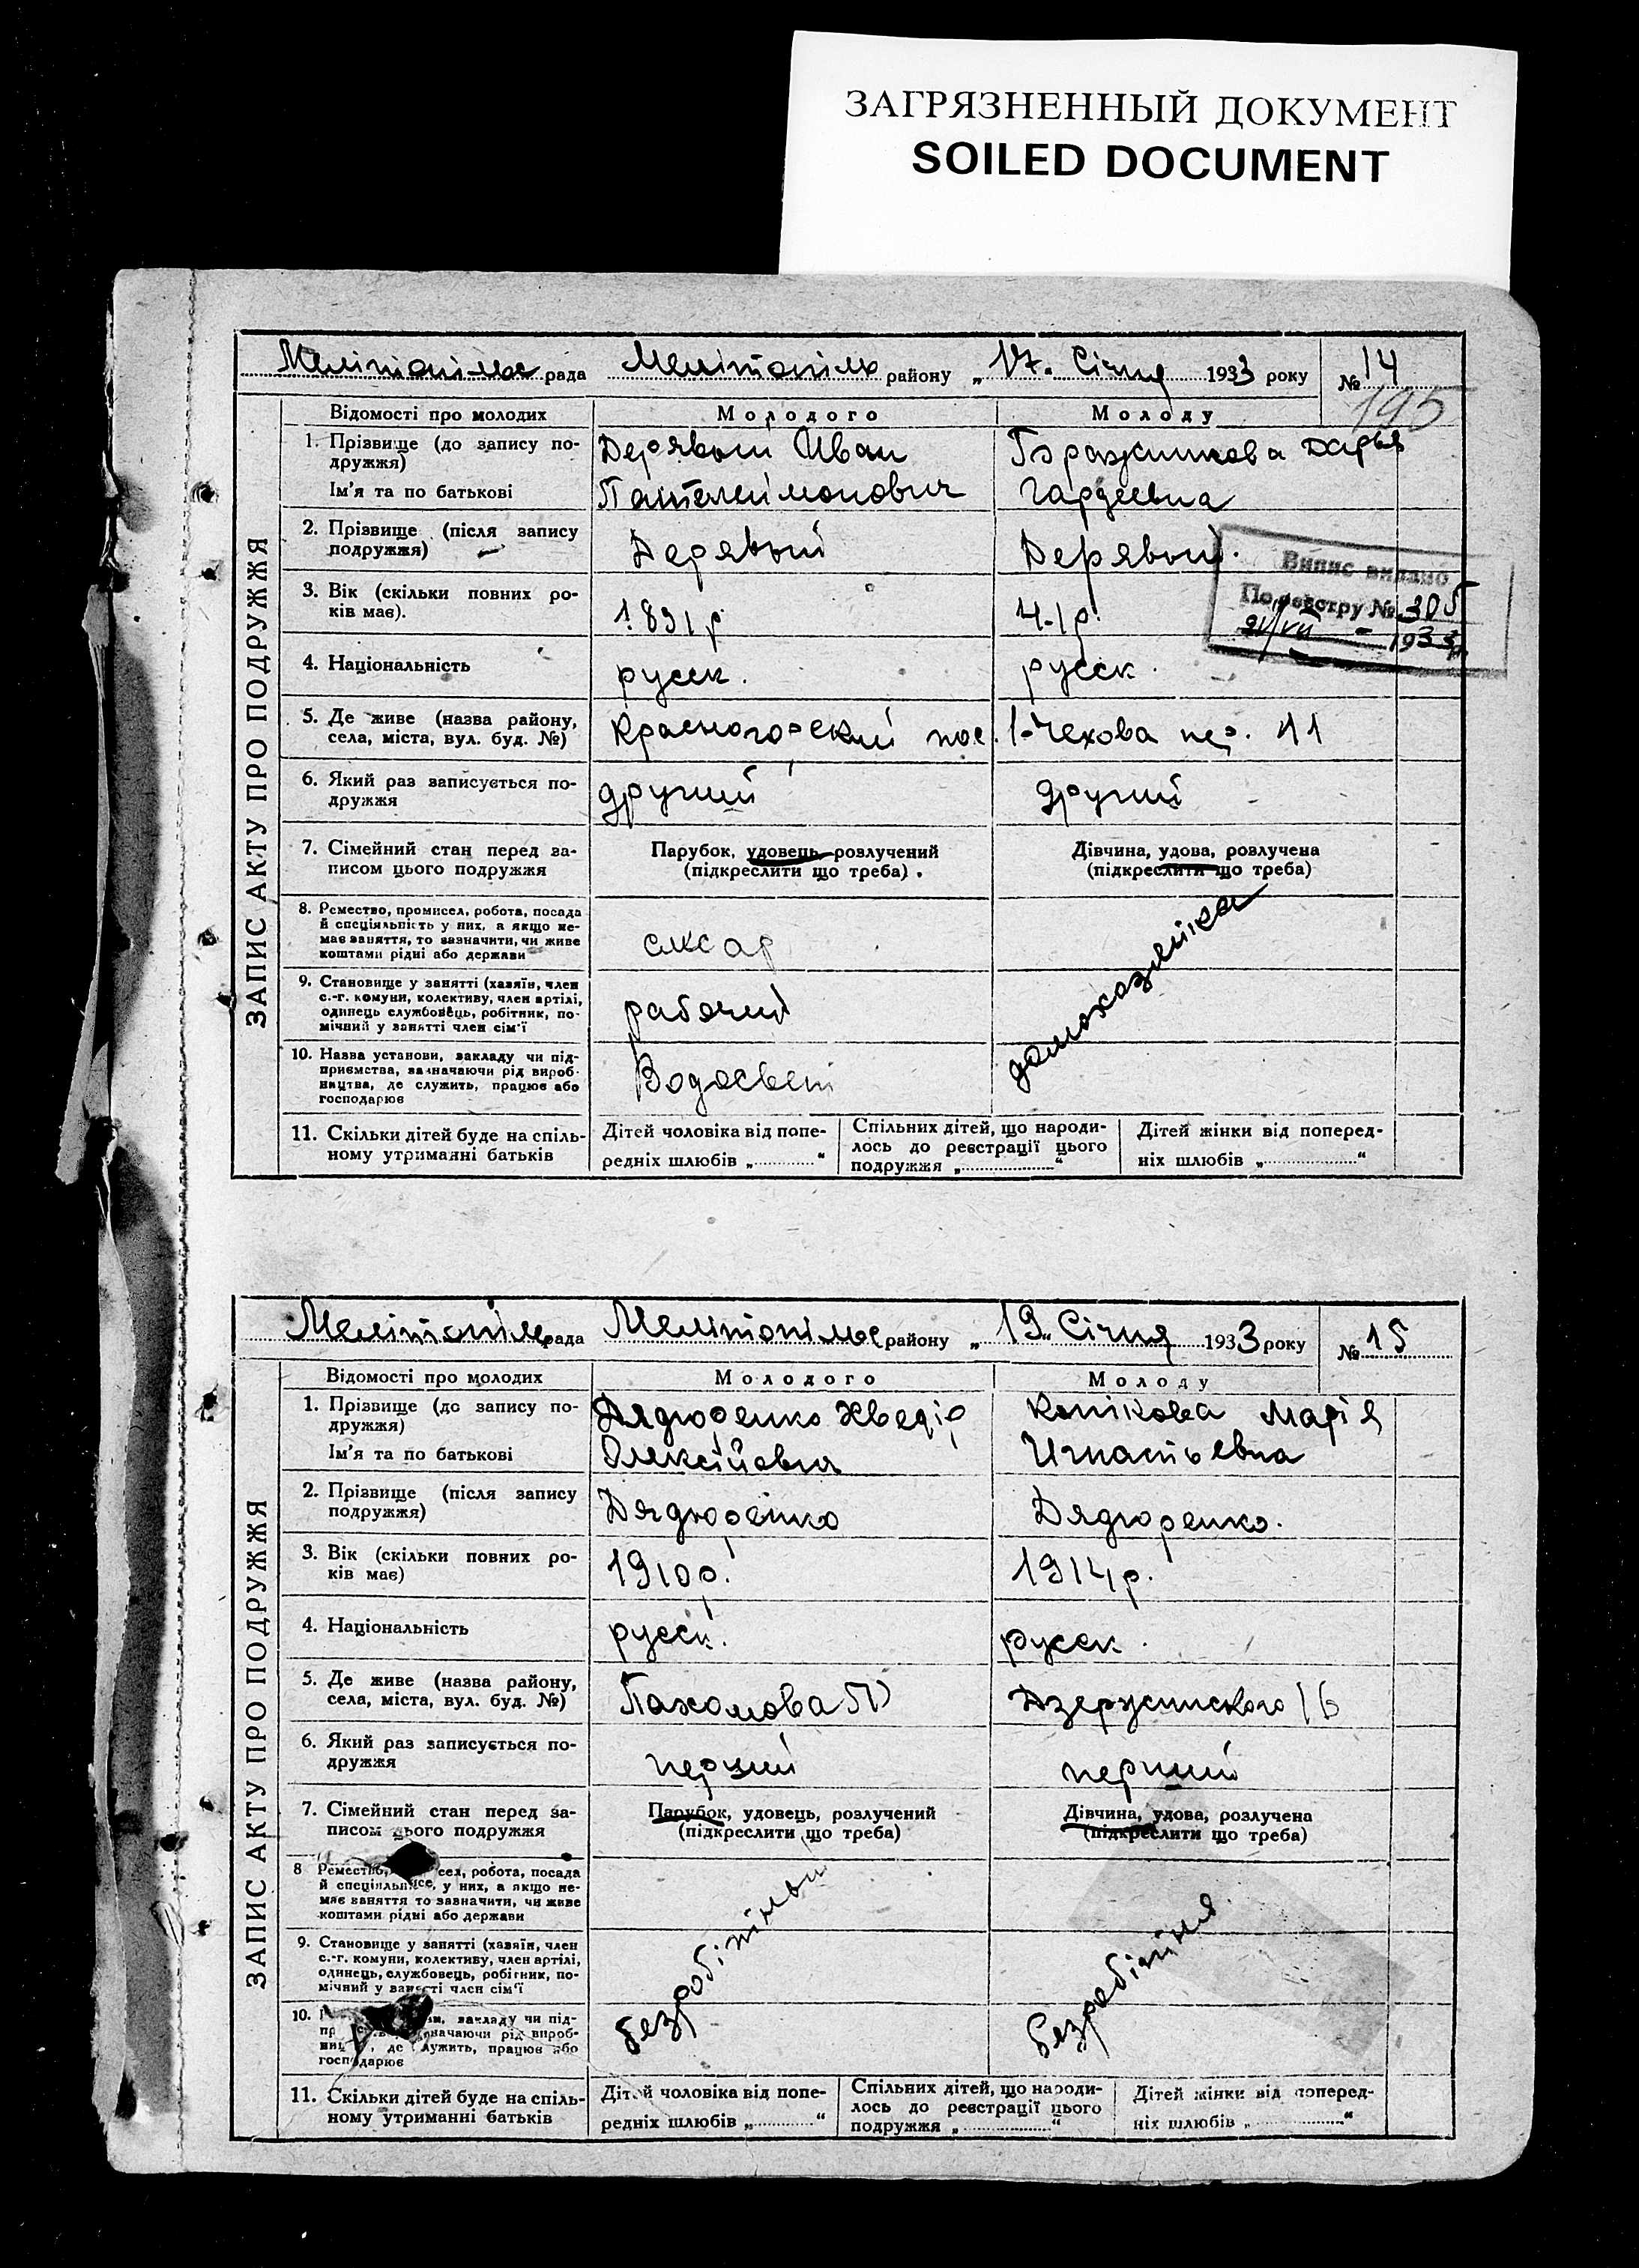 ЗАГРЯЗНЕННЫЙ ДОКУМЕНТ
SOILED DOCUMENT
Мелітопільс рада Мелітопільс району „ 17. Січня 1933 року № 14
195
ЗАПИС АКТУ ПРО ПОДРУЖЖЯ
Відомості про молодих Молодого Молоду
1. Прізвище (до запису по- Дерявый Иван Дарья
дружжя)
Ім'я та по батькові Пантелеймонович Гардеевна
2. Прізвище (після запису Дерявый Дерявый.
подружжя)
Випис видано
По реєстру № 305
21/VII – 1933 р.
3. Вік (скільки повних ро- 1891 р 41 р.
ків має).
4. Національність русск. русск.
5. Де живе (назва району, Красногорский пос. 1-Чехова пер. 11
села, міста, вул. буд. №)
6. Який раз записується по- другий другий
дружжя
7. Сімейний стан перед за- Парубок, удовець, розлучений Дівчина, удова, розлучена
писом цього подружжя (підкреслити що треба). (підкреслити що треба)
8. Ремество, промисел, робота, посада
й спеціяльність у них, а якщо не- слесар домохазяйка
має заняття, то зазначити, чи живе
коштами рідні або держави
9. Становище у занятті (хазяїн, член
с.-г. комуни, колективу, член артілі, рабочий
одинець службовець, робітник, по-
мічний у занятті член сім'ї
10. Назва установи, закладу чи під-
приємства, зазначаючи рід вироб- Водосвет
ництва, де служить, працює або
господарює
11. Скільки дітей буде на спіль- Дітей чоловіка від попе- Спільних дітей, що народи- Дітей жінки від поперед-
ному утриманні батьків редніх шлюбів „ “ лось до реєстрації цього ніх шлюбів „ “
подружжя „ “
Мелітопільс рада Мелітопільс району „ 19 „ Січня 1933 року № 15
ЗАПИС АКТУ ПРО ПОДРУЖЖЯ
Відомості про молодих Молодого Молоду
1. Прізвище (до запису по- Дядюренко Хведір Конікова Марія
дружжя)
Ім'я та по батькові Олексійович Игнатьевна
2. Прізвище (після запису Дядюренко Дядюренко.
подружжя)
3. Вік (скільки повних ро- 1910 р. 1914 р.
ків має)
4. Національність русск. русск.
5. Де живе (назва району, Пахомова Дзержинского 16
села, міста, вул. буд. №)
6. Який раз записується по- перший перший
дружжя
7. Сімейний стан перед за- Парубок, удовець, розлучений Дівчина, удова, розлучена
писом цього подружжя (підкреслити що треба) (підкреслити що треба)
8 Ремество, сел, робота, посада
й спеціяльн у них, а якщо не- безробітный безробітня
має заняття то зазначити, чи живе
коштами рідні або держави
9. Становище у занятті (хазяїн, член
с.-г. комуни, колективу, член артілі,
одинець, службовець, робітник, по-
мічний у занятті член сім'ї
10. закладу чи під-
значаючи рід вироб-
де служить, працює або
господарює
11. Скільки дітей буде на спіль- Дітей чоловіка від попе- Спільних дітей, що народи- Дітей жінки від поперед-
ному утриманні батьків редніх шлюбів „ “ лось до реєстрації цього ніх шлюбів „ “
подружжя „ “